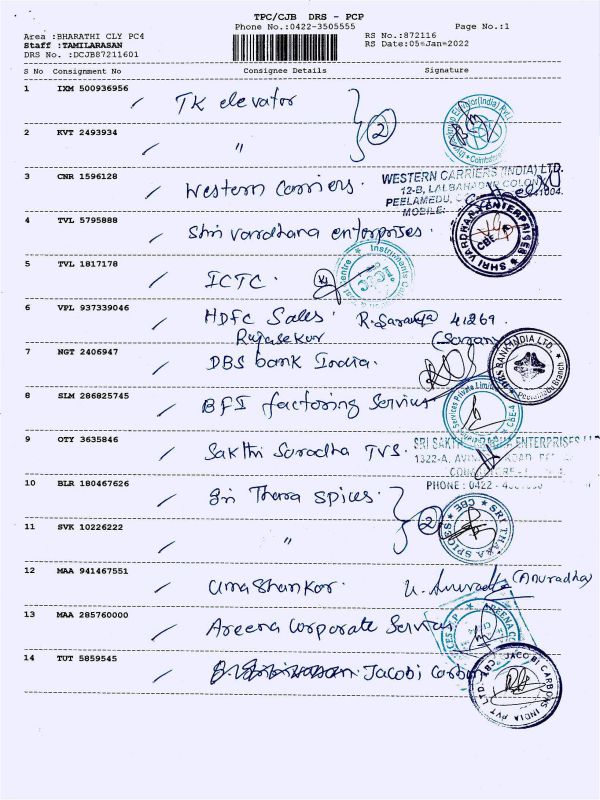 TPC/CJB DRS - PCP
Phone No.:0422-3505555
Page No.:1
Area :BHARATHI CLY PC4
Staff :TAMILARASAN
DRS No. :DCJB87211601
RS No.:872116
RS Date:05=Jan=2022
S No Consignment No Consignee Details Signature
1 IXM 500936956 TK elevator
2
2 KVT 2493934 "
3 CNR 1596128 Western Carriers.
WESTERN CARRIERS (INDIA) LTD.
12-B, LALBAHADUR COLONY
PEELAMEDU,
MOBILE:
4 TVL 5795888 Shri vardhana enterprises.
SHRI VARDHANA ENTERPRISES CBE
5 TVL 1817178 ICTC.
6 VPL 937339046 HDFC Sales. R. 41269
Rajasekar
7 NGT 2406947 DBS bank India.
DBS BANK INDIA LTD. Peelamedu Branch
8 SLM 286825745 BFI factoring Services
Services Private Limited CBE-4
9 OTY 3635846 Sakthi Saradha TVS.
ENTERPRISES
1322-A,
PHONE : 0422 -
10 BLR 180467626 Sri Thara Spices.
2
SRI THARA SPICES CBE
11 SVK 10226222 "
12 MAA 941467551 Uma Shankar. U. Anuradha (Anuradha)
13 MAA 285760000 Areena Corporate Services
14 TUT 5859545 Jacobi Carbon
JACOBI CARBONS INDIA PVT LTD CBE